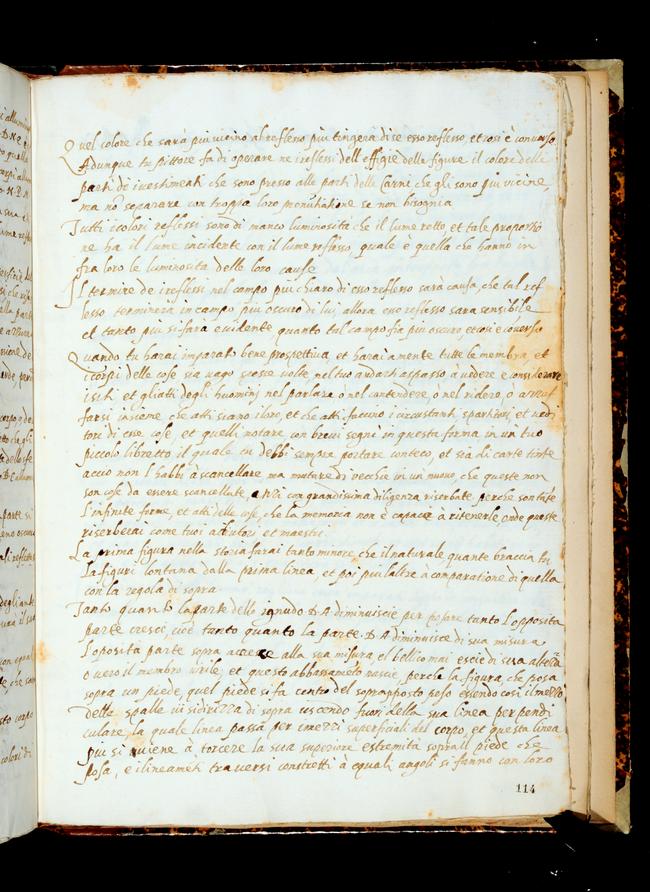 Quel colore che sarà piu vicino al reflesso piu tingerà di se esso reflesso, et così è converso.
Adunque tu pittore fa di operare ne i reflessi dell effigie della figure. il colori delle
parti de i vestimenti che sono presso alle parti delle Carni che gli sono piu vicine,
ma nõ separare con troppa loro pronuntiatione se non bisognia
Tutti i colori reflessi sono di manco luminosità che il lume retto, et tale proportio
ne ha il lume incidente con il lume reflesso, quale è quella che hanno in
fra loro le luminosità delle loro cause
Il termine de i reflessi nel campo piu chiaro di esso reflesso sarà causa, che tal ref
lesso terminerà in campo piu oscuro di lui, allora esso reflesso sara sensibile
et tanto piu si fara evidente quanto tal campo fia piu oscuro, et così è converso
Quando tu harai imparato bene prospettiva, et harai a mente tutte le membra, et
i corpi delle cose sia vago spesse volte nel tuo andarti a spasso à vedere e considerare
i siti et gli atti degli huomini nel parlare ò nel contendere, ò nel ridere, ò azzuf
farsi insieme che atti siano in loro, et che atti faccino i circustanti spartitori et vedi
tori di esse cose, et quelli notare con brevi segni in questa forma in un tuo
piccolo libretto il quale tu debbi sempre portare conteco, et sia di carte tinte
accio non l habbi à scancellare ma mutare di vecchie in un nuovo, che queste non
son cose da essere scancellate, anzi con grandissima diligenza riserbate perche son tate
l infinite forme, et atti delle cose, che la memoria non è capace à ritenerle, onde queste
riserberai come tuoi adiutori et maestri
La prima figura nella storia farai tanto minore, che il naturale, quante braccia tu
la figuri lontana dalla prima linea, et poi piu l altre à comparatione di quella
con la regola di sopra
Tanto quanto la parte dello ignudo D A diminuiscie per posare tanto l opposita
parte cresci, cioè tanto quanto la parte D A diminuisce di sua misura
l oposita parte sopra accresce alla sua misura, el bellico mai escie di sua alteza
o vero il membro virile, et questo abbassameto nascie, perche la figura, che posa
sopra un piede, quel piede si fa centro del soprapposto peso essendo così il mezzo
delle spalle vi si drizza di sopra uscendo fuori della sua linea perpendi
culare, la quale linea passa per i mezzi superficiali del corpo, et questa linea
piu si viene à torcere la sua superiore estremità sopra il piede che
posa, e i lineameti traversi constretti à equali angoli si fanno con loro
114